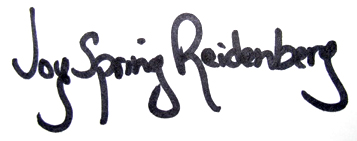 Joy Spring Reidenberg